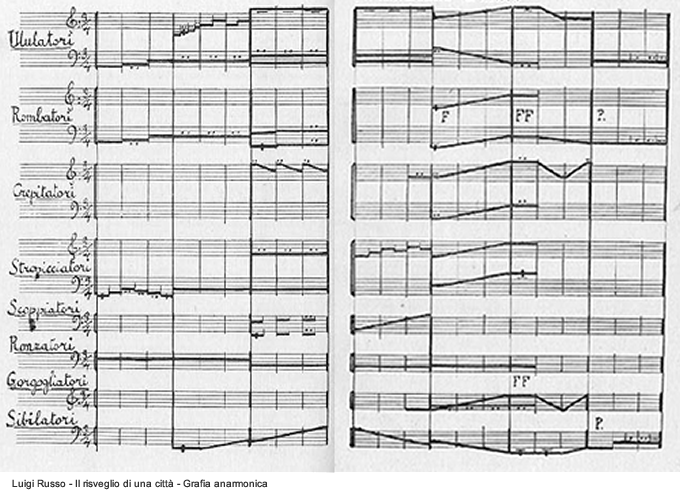 Ululatori
Rombatori
F FF P.
Crepitatori
Stropicciatori
Scoppiatori
Ronzatori
FF
Gorgogliatori
Sibilatori
P.
Luigi Russo - Il risveglio di una città - Grafia anarmonica